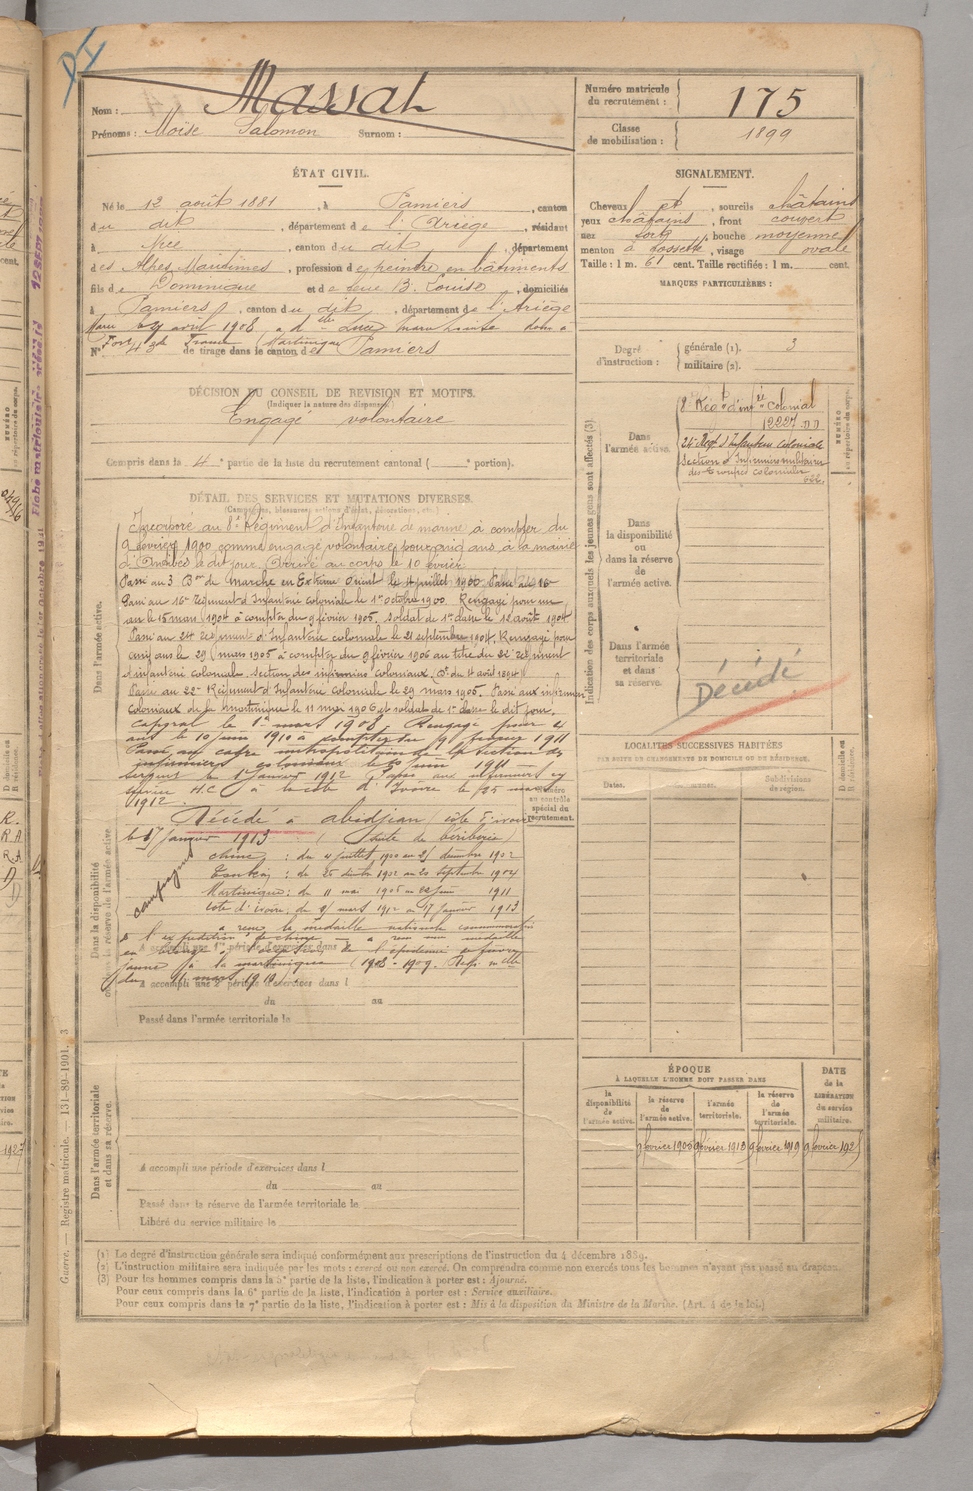 Nom : Massat
Prénoms : Moïse Salomon Surnom :
Numéro matricule du recrutement : 175
Classe de mobilisation : 1899
ÉTAT CIVIL.
Né le 12 août 1881, à Pamiers, canton
du dit, département de l'Ariège, résidant
à Nice, canton du dit, département
des Alpes Maritimes, profession de peintre en bâtiments
fils de Dominique et de feue B. Louise, domiciliés
à Pamiers, canton du dit, département de l'Ariège
Marié avril 1908 à dlle Luce
Fort de France (Martinique)
N° 43 de tirage dans le canton de Pamiers
SIGNALEMENT.
Cheveux et, sourcils châtains
yeux châtains, front couvert
nez fort, bouche moyenne
menton à fossette, visage ovale
Taille : 1 m. 61 cent. Taille rectifiée : 1 m. cent.
MARQUES PARTICULIÈRES :
Degré d'instruction : générale (1). 3
militaire (2).
DÉCISION DU CONSEIL DE REVISION ET MOTIFS.
(Indiquer la nature des dispenses)
Engagé volontaire
Compris dans la 4e partie de la liste du recrutement cantonal ( e portion).
DÉTAIL DES SERVICES ET MUTATIONS DIVERSES.
(Campagnes, blessures, actions d'éclat, décorations, etc.)
Dans l'armée active.
Incorporé au 8e Régiment d'Infanterie de marine à compter du
9 février 1900 comme engagé volontaire pour cinq ans à la mairie
d'Antibes le dit jour. Arrivé au corps le 10 février
Passé au 3 Bon de marche en Extrême Orient le 4 juillet 1900
Passé au 16e Régiment d'Infanterie coloniale le 1er octobre 1900. Rengagé pour un
an le 15 mars 1904 à compter du 9 février 1905. Soldat de 1re classe le 12 août 1904
Passé au 24 Régiment d'Infanterie coloniale le 21 septembre 1904. Rengagé pour
cinq ans le 29 mars 1905 à compter du 9 février 1906 au titre du 22e Régiment
d'infanterie coloniale. Section des infirmiers coloniaux
Passé au 22e Régiment d'Infanterie coloniale le 29 mars 1905. Passé aux infirmiers
coloniaux de la Martinique le 11 mai 1906 et soldat de 1re classe le dit jour.
Caporal le 1er mars 1908 Rengagé pour 4
ans le 10 juin 1910 à compter du 9 février 1911
Passé au cadre métropolitain de la section des
infirmiers coloniaux le 30 juin 1911
Sergent le 1er janvier 1912 Passé aux infirmiers en
service H.C. à la côte d'Ivoire le 25 mars
1912.
Décédé à Abidjean (côte d'Ivoire)
le 17 janvier 1913 (suite de béribérie)
Campagnes
Chine : du 4 juillet 1900 au 25 décembre 1902
Tonkin : du 25 décbre 1902 au 20 septembre 1904
Martinique : du 11 mai 1905 au juin 1911
Côte d'ivoire, du mars 1912 au 17 janvier 1913
a reçu la médaille nationale commémorative
de l'expédition de Chine a reçu une médaille
en bronze l'épidémie de fièvre
jaune à la Martinique (1908-1909. Déci. mlle
du 11 mars 1910.
Dans la disponibilité ou dans la réserve de l'armée active.
A accompli une 1re période d'exercices dans
A accompli une 2e période d'exercices dans l
du au
Passé dans l'armée territoriale le
Numéro au contrôle spécial du recrutement.
Dans l'armée territoriale et dans sa réserve.
A accompli une période d'exercices dans l
du au
Passé dans la réserve de l'armée territoriale le
Libéré du service militaire le
Indication des corps auxquels les jeunes gens sont affectés (3).
Dans l'armée active.
8 Régt d'infie Colonial
12227
24e Régt d'Infanterie Coloniale
Section d'Infirmiers militaires
des Troupes coloniales
NUMÉRO au répertoire du corps.
Dans la disponibilité ou dans la réserve de l'armée active.
Dans l'armée territoriale et dans sa réserve.
Décédé
LOCALITÉS SUCCESSIVES HABITÉES
PAR SUITE DE CHANGEMENTS DE DOMICILE OU DE RÉSIDENCE.
Dates.
Communes.
Subdivisions de région.
D domicile ou R résidence.
ÉPOQUE
À LAQUELLE L'HOMME DOIT PASSER DANS
la disponibilité de l'armée active.
la réserve de l'armée active.
l'armée territoriale.
la réserve de l'armée territoriale.
DATE de la LIBÉRATION du service militaire.
9 février 1905 9 février 1913 9 février 1919 9 février 1925
(1) Le degré d'instruction générale sera indiqué conformément aux prescriptions de l'instruction du 4 décembre 1889.
(2) L'instruction militaire sera indiquée par les mots : exercé ou non exercé. On comprendra comme non exercés tous les hommes n'ayant pas passé au drapeau.
(3) Pour les hommes compris dans la 5e partie de la liste, l'indication à porter est : Ajourné.
Pour ceux compris dans la 6e partie de la liste, l'indication à porter est : Service auxiliaire.
Pour ceux compris dans la 7e partie de la liste, l'indication à porter est : Mis à la disposition du Ministre de la Marine. (Art. 4 de la loi.)
Guerre. — Registre matricule. — 131-89-1901. 3